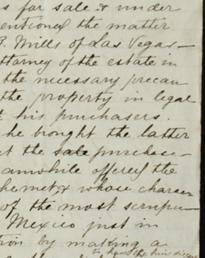 s for sale & under
entioned the matter
T. Mills of Las Vegas—
ttorney of the estate in
the necessary precau
the property in legal
t his purchasers.
he brought the latter
at the sale purchase—
eanwhile offered the
he met & whose charac
of the most scrupu—
Mexico just in
ion by making a